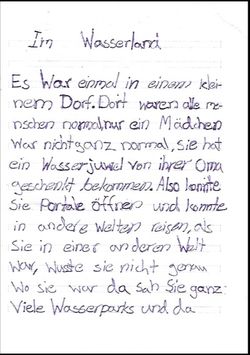 Im Wasserland
Es War einmal in einem klei-
nem Dorf. Dort waren alle me-
nschen normal nur ein Mädchen
War nicht ganz normal, sie hat
ein Wasserjuwel von ihrer Oma
geschenkt bekommen. Also konnte
Sie Portale Öffnen und konnte
in andere Welten reisen, als
Sie in einer anderen Welt
War, wuste sie nicht genau
Wo sie war da sah Sie ganz
Viele Wasserparks und da